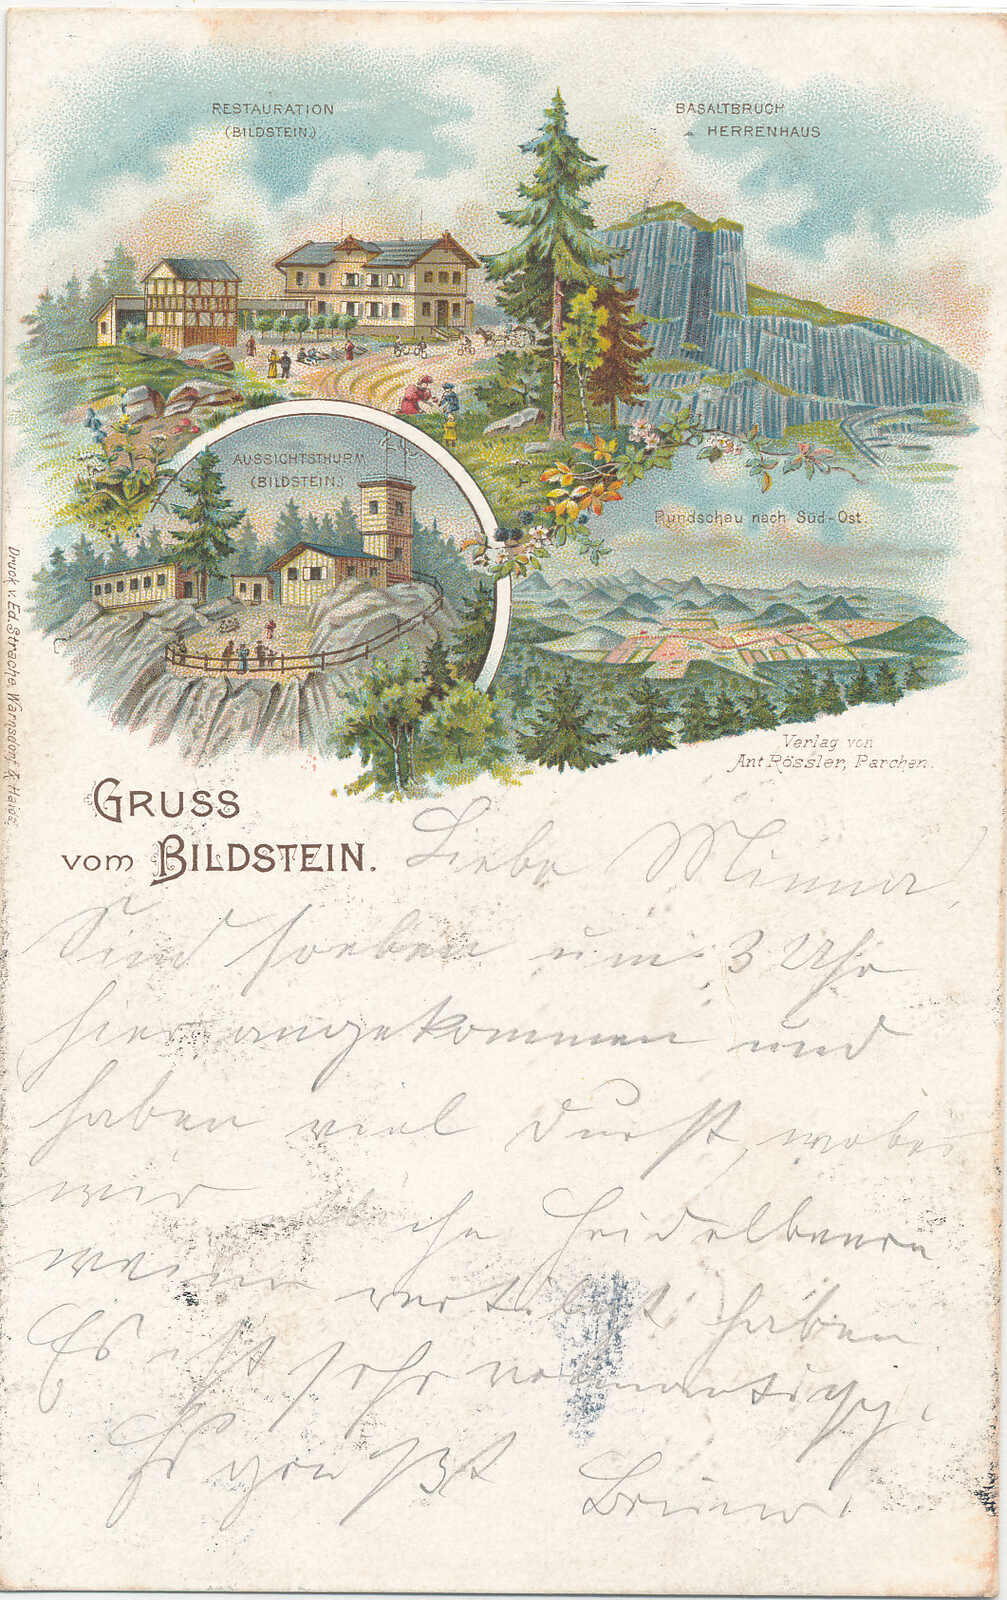 RESTAURATION
(BILDSTEIN.)
BASALTBRUCH
HERRENHAUS
AUSSICHTSTHURM
(BILDSTEIN.)
Rundschau nach Süd-Ost.
Verlag von
Ant. Rössler, Parchen.
Druck v. Ed. Strache, Warnsdorf & Haida.
GRUSS
VOM BILDSTEIN.
Liebe Minna,
Sind soeben um 3 Uhr
hier angekommen und
haben viel Durst, wobei
wir Heidelbeere
weine vertilgt haben
Es ist sehr romantisch.
Es grüßt Bruno